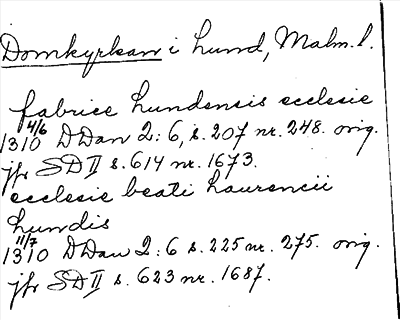 Domkyrkan i Lund, Malm. l.
fabrice Lundensis ecclesie
1310 4/6 DDan 2: 6, s. 207 nr. 248. orig.
jfr SD II s. 614 nr. 1673.
ecclesie beati Laurencii
Lundis
1310 11/7 DDan 2: 6 s. 225 nr. 275. orig.
jfr SD II s. 623 nr. 1687.